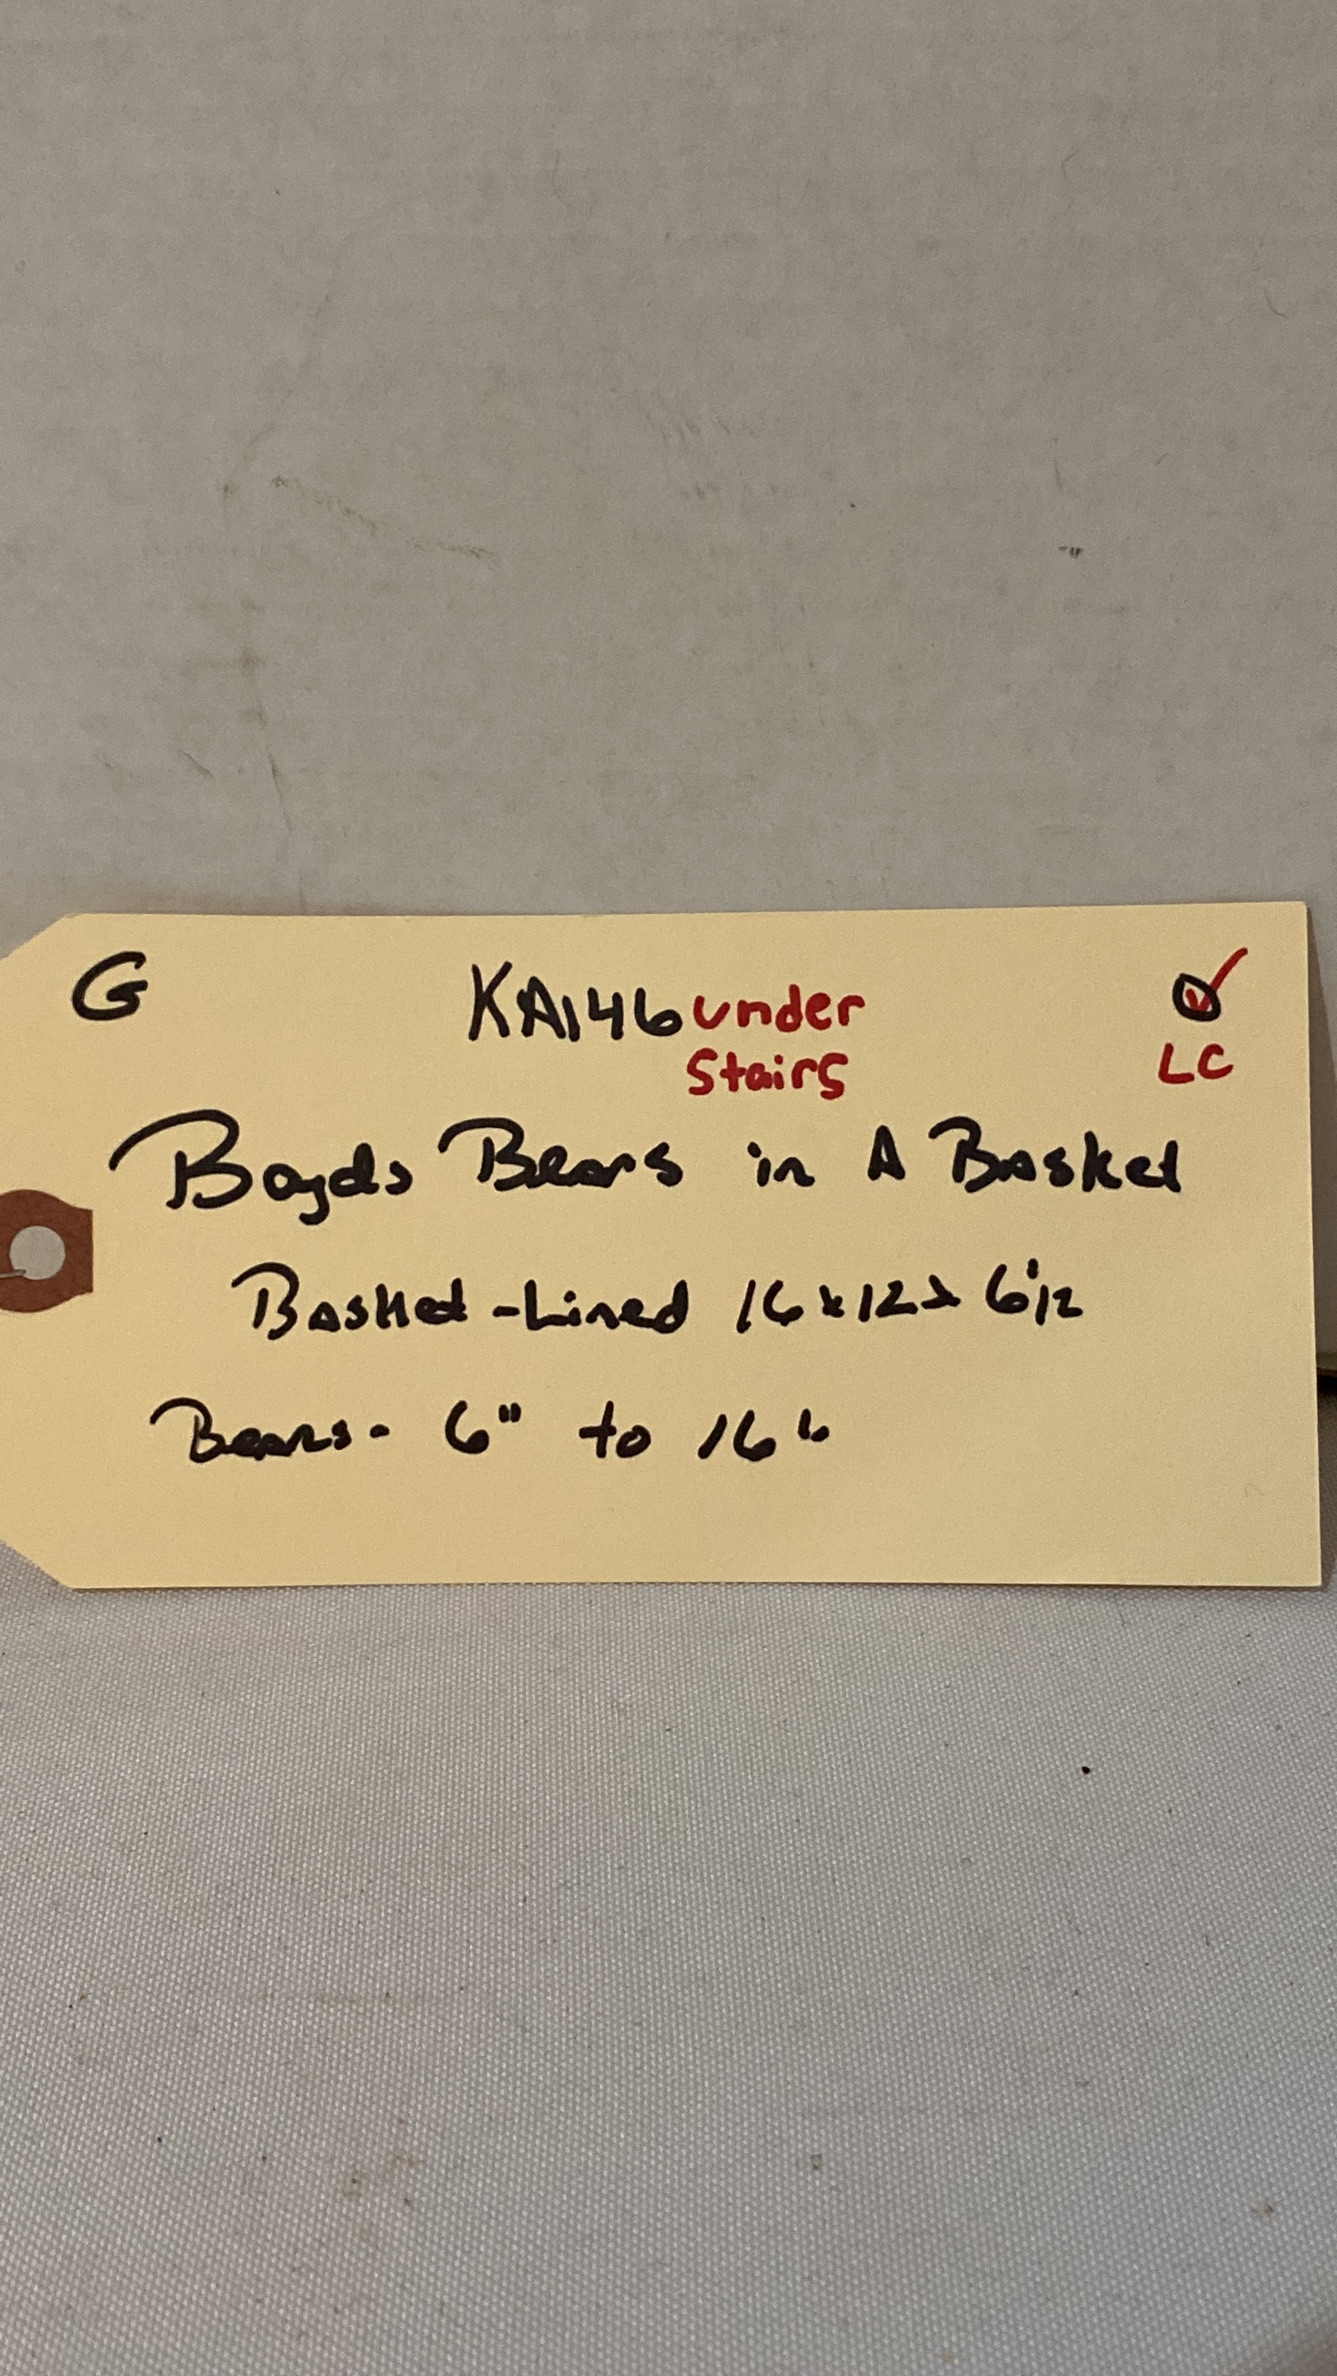 G KA146 under ✓
Stairs LC
Boyds Bears in A Basket
Basket - Lined 16 x 12 x 6 1/2
Bears - 6" to 16"